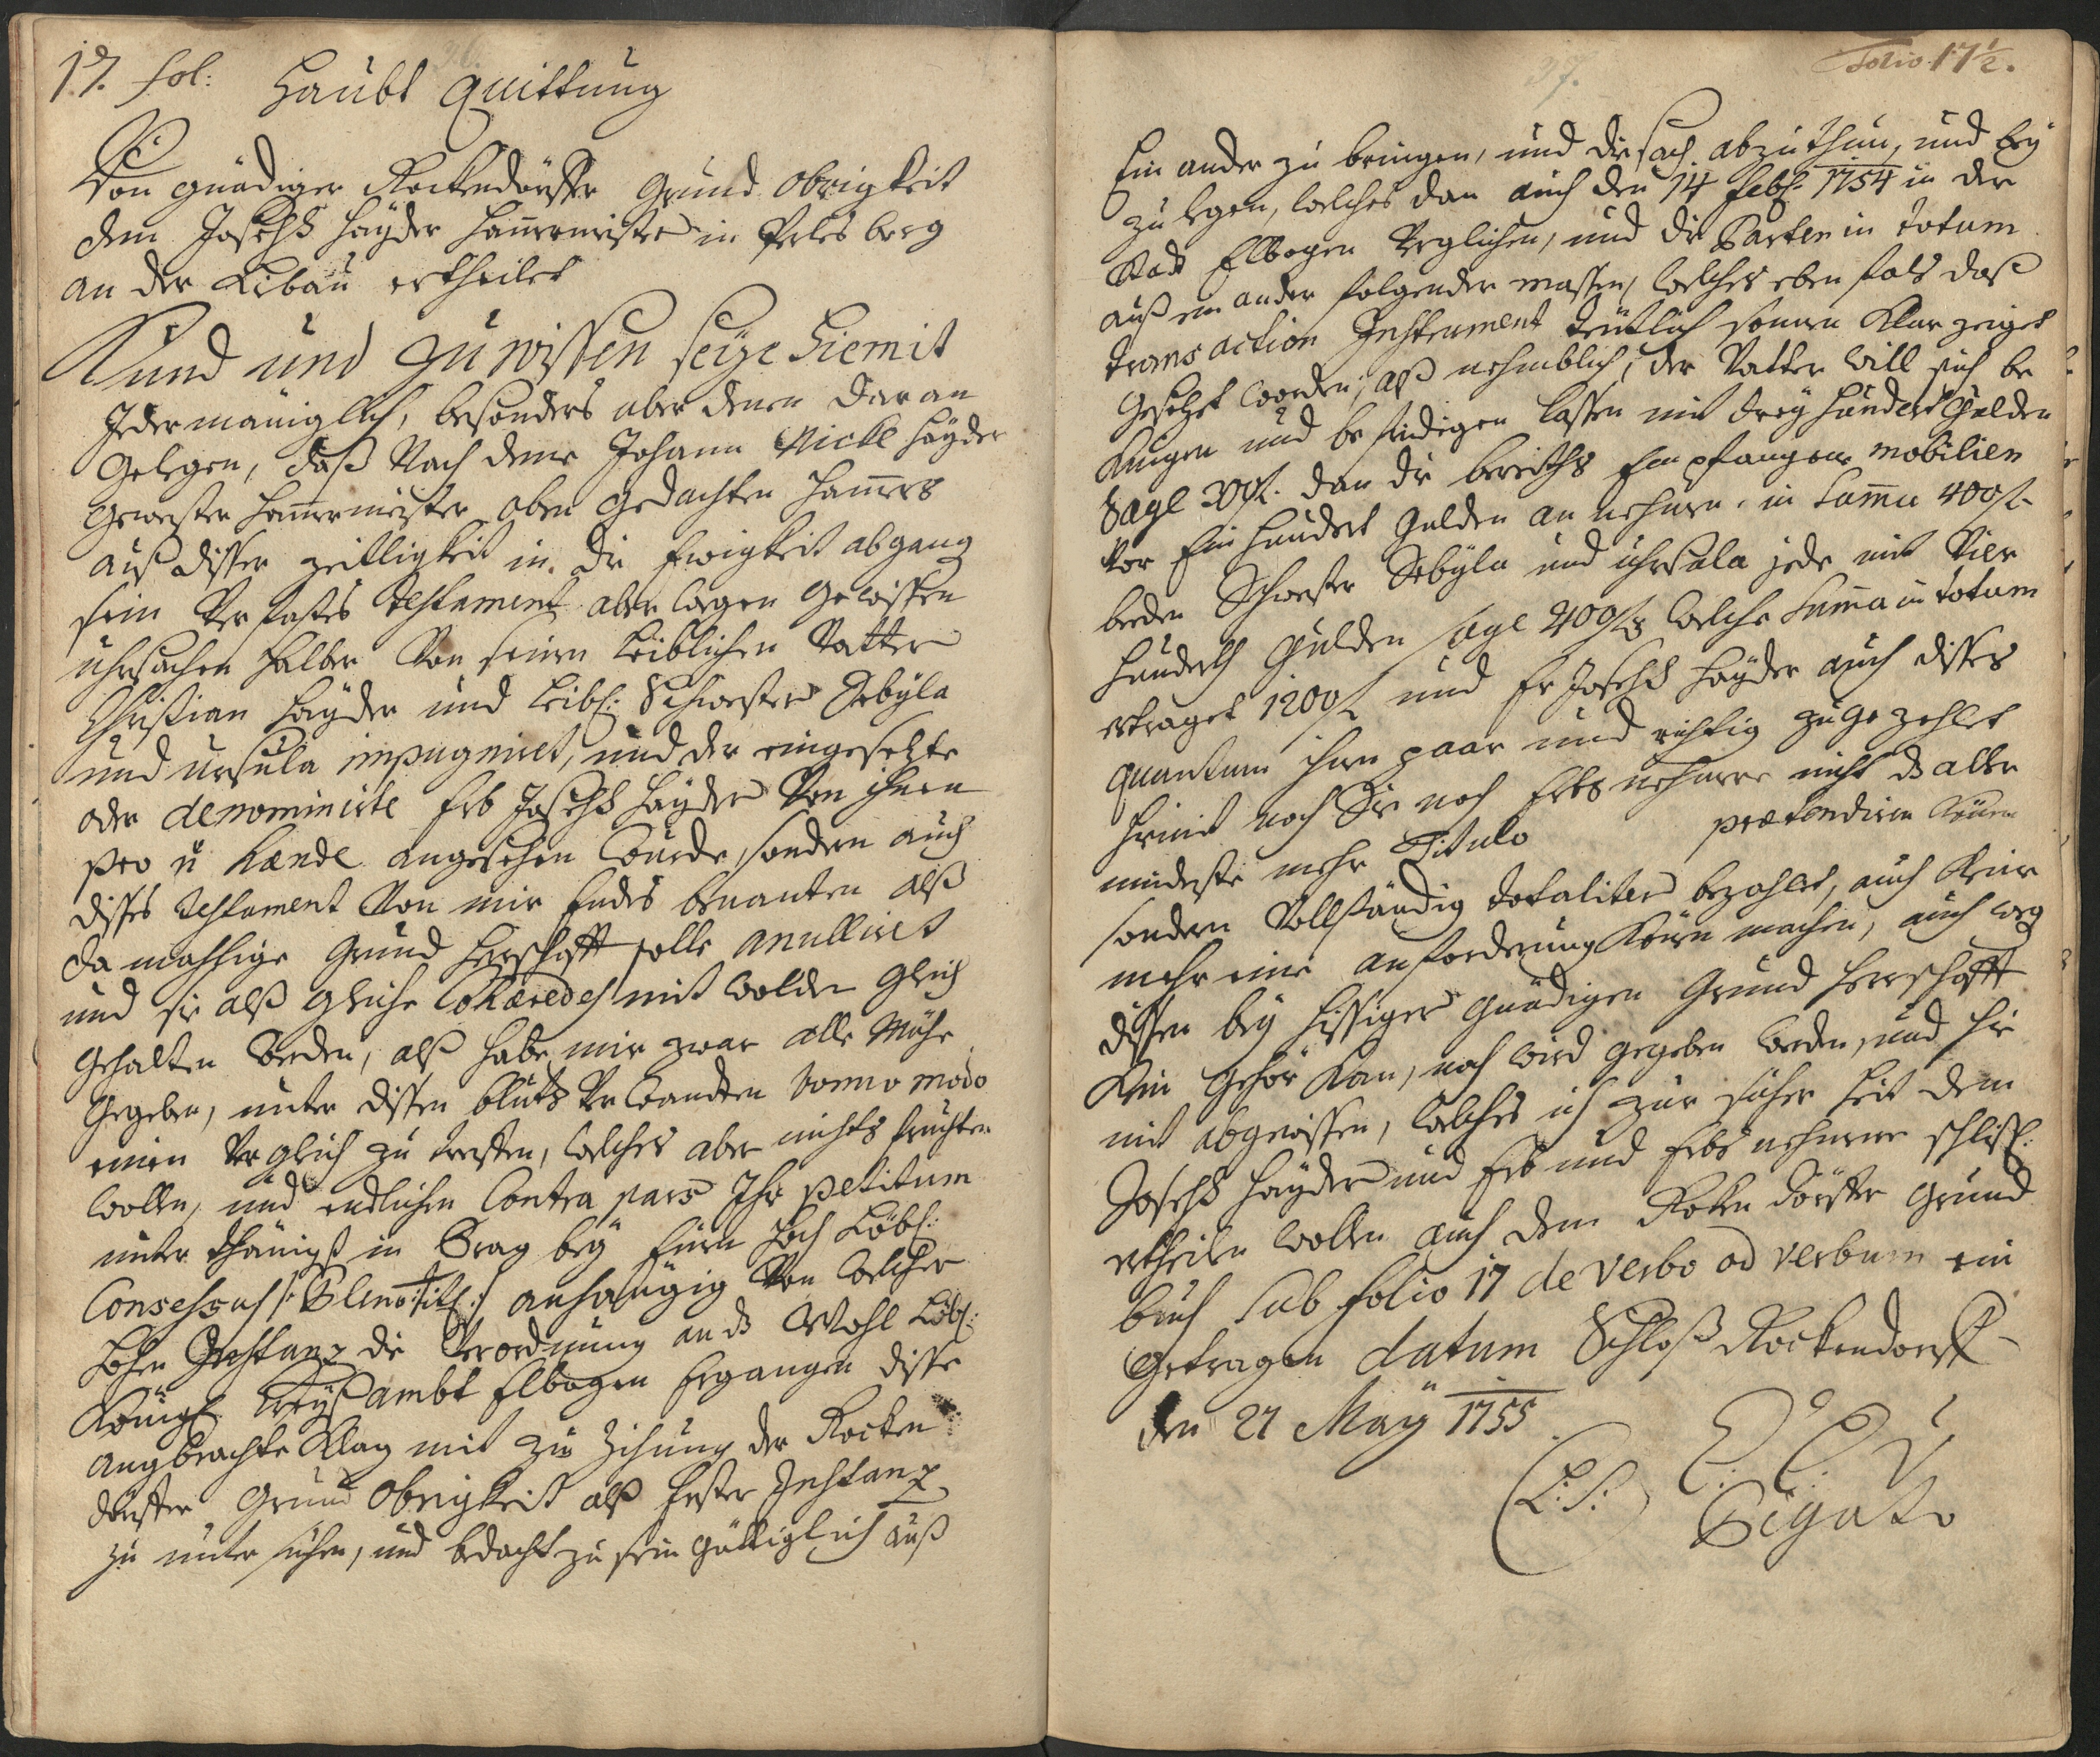 17. fol: 36.
Haubt Quittung
Von gnädiger Rockendörffer Grund Obrigkeit
dem Joseph Hayder Ham̄ermeister in Perlesberg
an der Libau ertheilet
Kund und zu wissen seÿe hiemit
Jedermäniglich, besonders aber denen daran
gelegen, daß Nach deme Johann Nickl Hayder
gewester Ham̄ermeister oben gedachten Ham̄ers
auß disser zeittligkeit in die Ewigkeit abgang
sein Verfastes Testament aber wegen gewissen
uhrsachen halber Von seinen leiblichen Vatter
Christian Hayder und leibl: Schwester Sebÿla
und Ursula impugniret, und der eingesetzte
oder denominirte Erb Joseph Hayder Von ihnen
pro angesehen wurde, sondern auch
disses Testament Von mir Endes benanten alß
damahlige Grund Herschafft solle anulliret
und sie alß gleiche Cohæredes mit wolden gleich
gehalten werden, alß habe mir zwar alle Mühe
gegeben, unter dissen bluts Verwandten bono modo
einen Verglich zu treffen, welches aber nichts fruchten
wollen, und endlichen Contra pars Ihr petitum
unterthänigst in Prag beÿ Einen Hoch Löbl:
Consessus /: Pleno Titl: / anhängig Von welcher
Hohen Instanz die Verordnung an ds Wohl Löbl:
Königl: Creÿßambt Elbogen Ergangen disse
angebrachte Klag mit zu Zihung der Rocken
dörffer Grund Obrigkeit alß Erster Instanz
zu untersuchen, und bedacht zu sein güttiglich auß
37. Folio 17½.
Ein ander zu bringen, und die sach abzuthun, und beÿ
zu legen, welches dan auch den 14 Feb: 1754 in der
Stadt Elbogen Verglichen, und die Parten in totum
auß ein ander folgender massen, welches eben fals daß
transaction Instrument deutlich sonnen Klar zeiget
gesetzet worden, alß nehmblich, der Vatter will sich be
nügen und befridigen lassen mit dreÿ Hundert Gulden
sage 300 fl. dan die bereiths Empfangene mobilien
Vor Ein Hundert Gulden an nehmen, in Sum̄a 400 fl
beeden Schwester Sebÿla und Uhrsula jede mit Vier
Hunderth Gulden sage 400 fl welche Sum̄a in totum
ertraget 1200 fl und Er Joseph Hayder auch disses
quantum ihnen paar und richtig zugezehlet
hirmit noch Sie noch Erbsnehmere nicht ds aller
mindeste mehr Titulo prætendiren Können
sondern Vollständig totaliter bezahlet, auch Keine
mehr eine anforderung Könen machen, auch weg
dissen beÿ hissiger Gnädigen Grund Herrschafft
Kein Gehör Kan, noch wird gegeben werden, und hie
mit abgewissen, welches ich zur sicherheit dem
Joseph Hayder und Erb und Erbsnehmere schlißl:
ertheilen wollen auch dem Rockendörffer Grund
buch sub folio 17 de verbo ad verbum ein
getragen datum Schloß Rockendorff
den 27 Maÿ 1755
(L: S:)